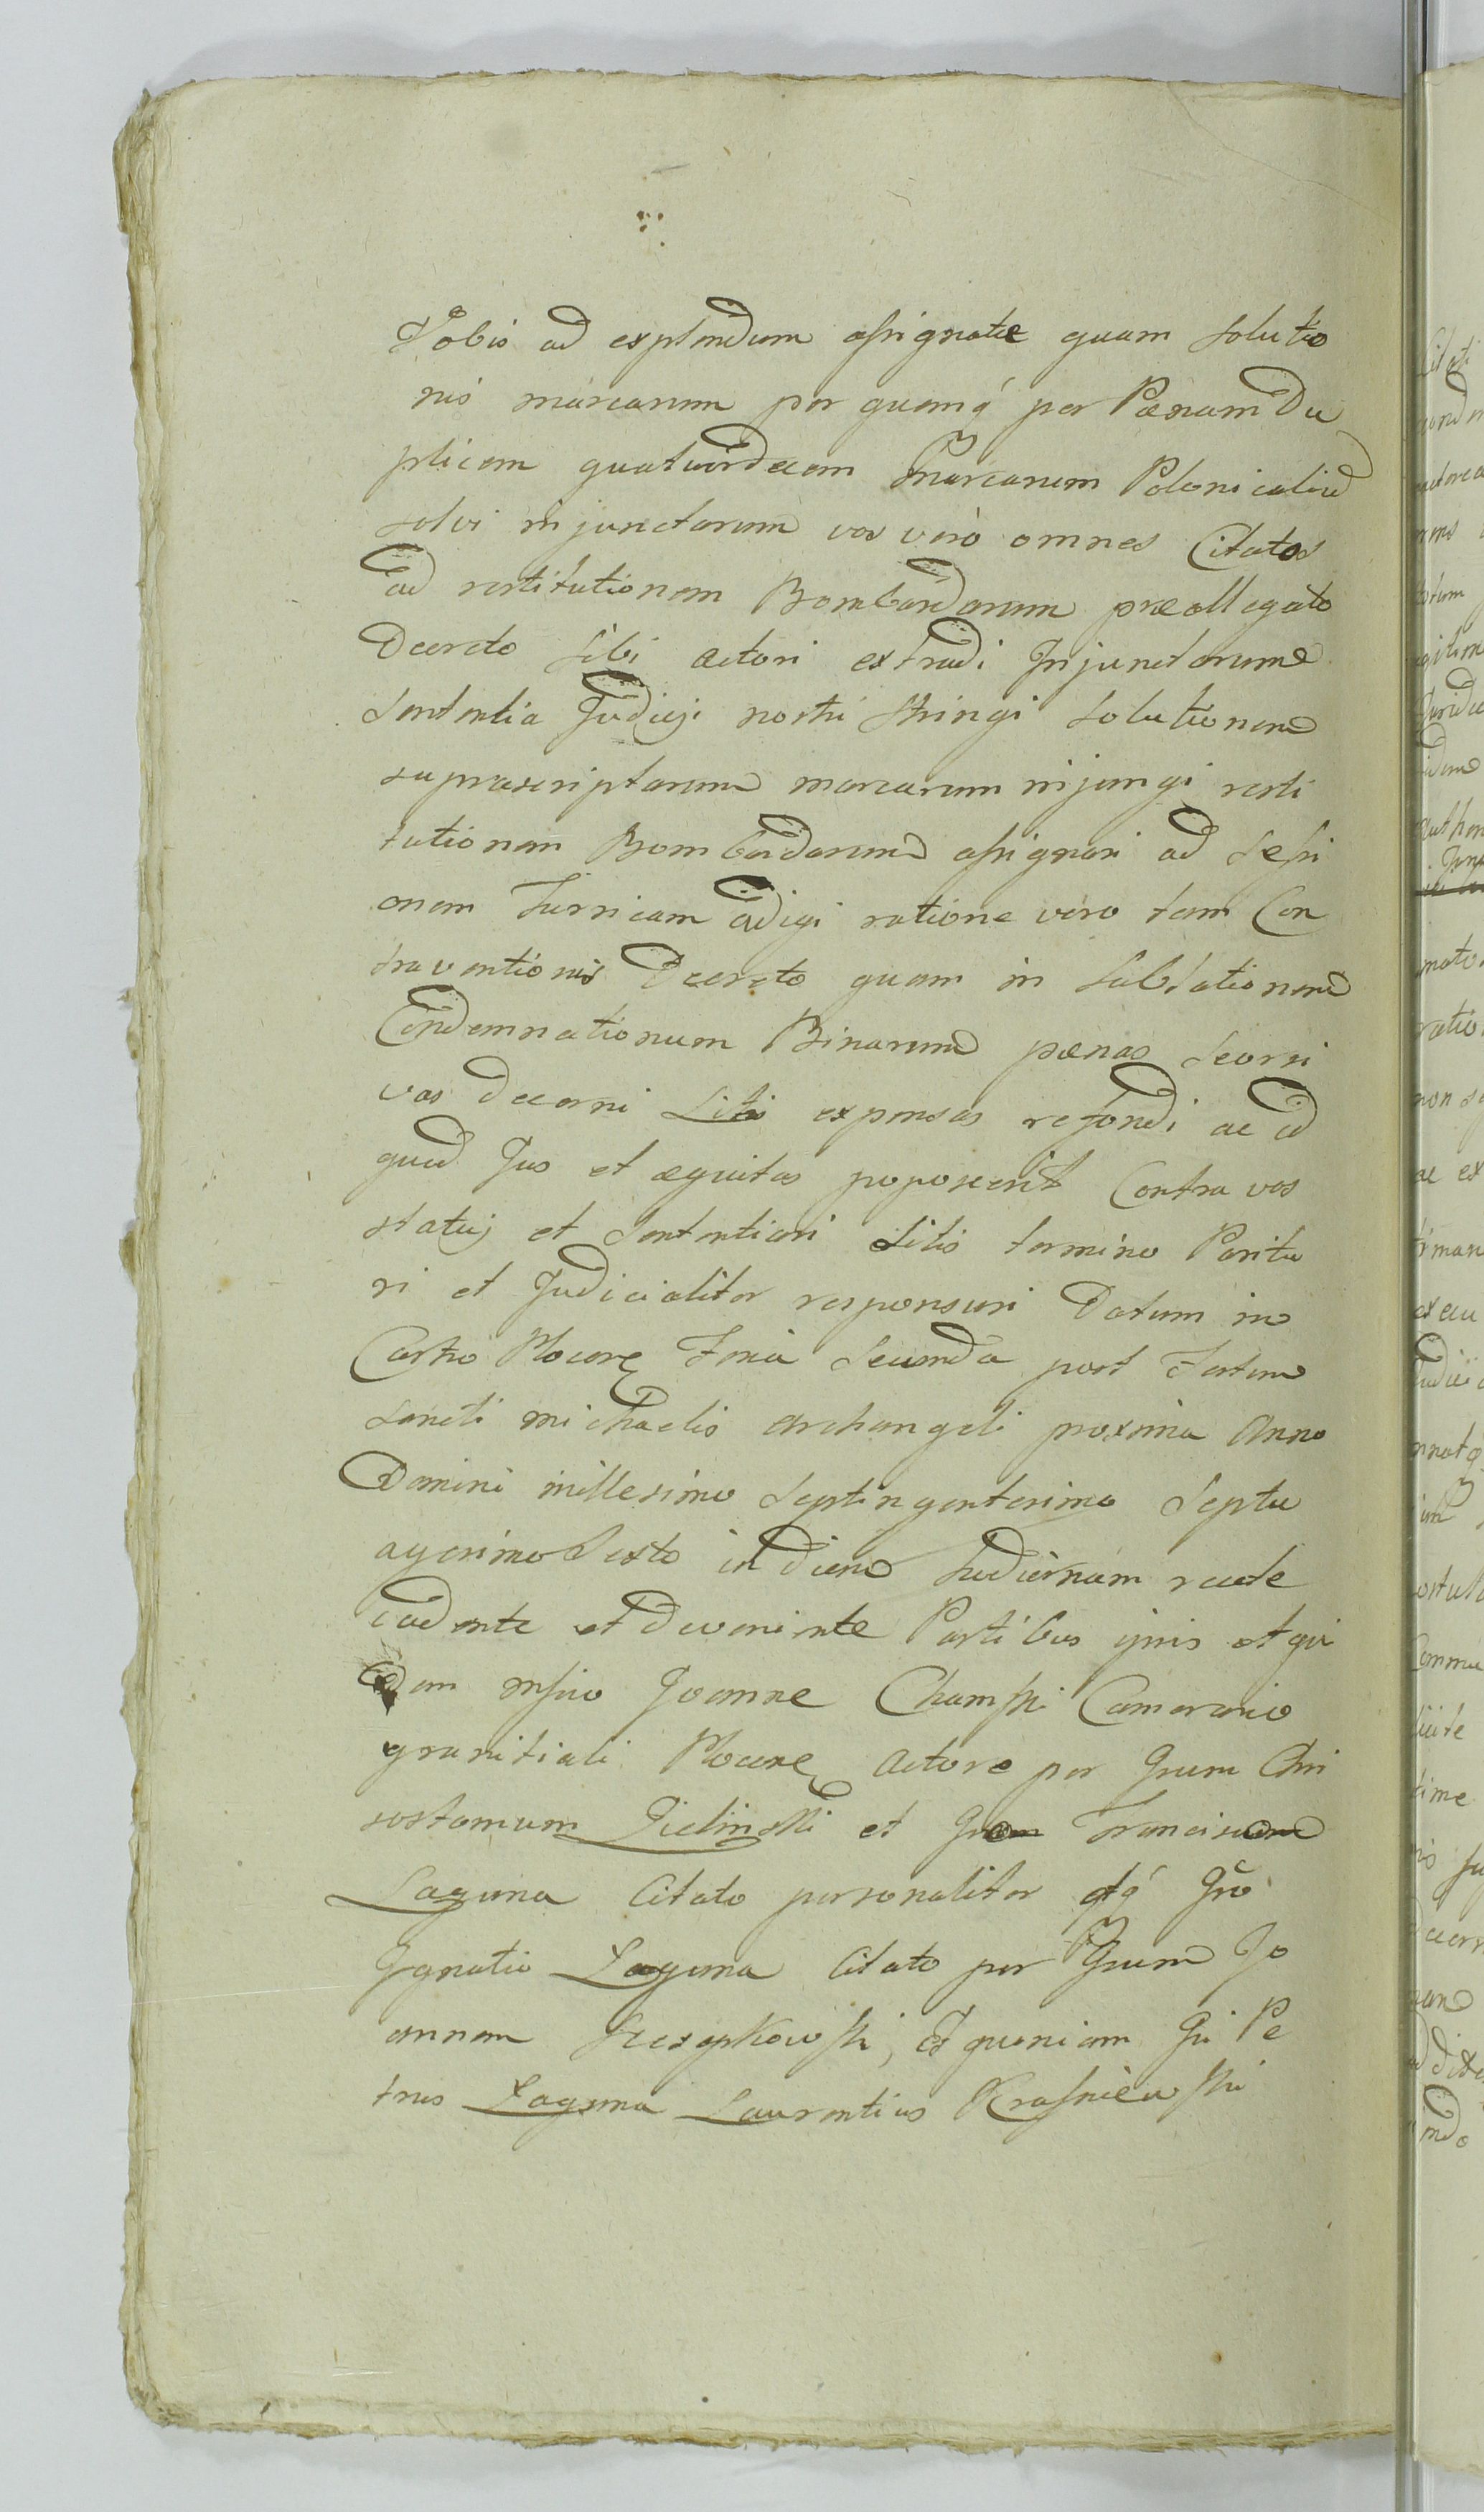 Vobis ad explendum assignatæ quam solutio
nis marcarum per quemq́ per Pænam Du
plicem quatuordecem Marcarum Polonicaliu
solvi injunctarum vos verò omnes Citatos
ad restitutionem Bombardarum præallegato
Decreto sibi actori extradi Injunctarum
sententia Judicÿ nostri stringi solutionem
suprascriptarum marcarum injungi resti
tutionem Bombardarum assignari ad sessi
onem Turricam adigi ratione vero tam Con
traventionis Decreto quam in sublationem
Condemnationum Binarum pænas seorsi
vas decerni Litis expensas refundi ac id
quod Jus et æquitas poposcerit Contra vos
statuj et sententiari Litis termino Paritu
ri et Judicialiter responsuri Datum in
Castro Plocen Feria Secunda post Festum
Sancti michaelis archangeli proxima Anno
Domini millesimo Septingentesimo Septu
agesimo Sexto in diem hodiernam recte
cadente et deveniente Partibus ipsis et qui
dem Joanne Chamski Camerario
granitiali Plocen Actore per Grum Chri
sostomum Zielinski et Francisco
Laguna Citato personaliter atq́ Gro
Ignatio Laguna Citato per Grum Jo
annem Szczepkowski, Et quoniam Gri Pe
trus Laguna Laurentius Krasniewski